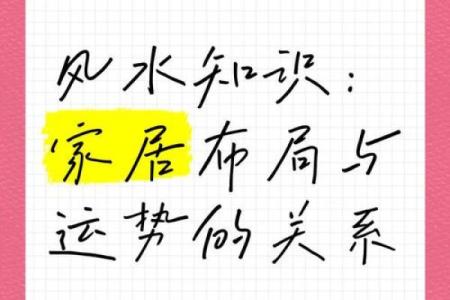 风水知识：
家居布局与
运势的关系